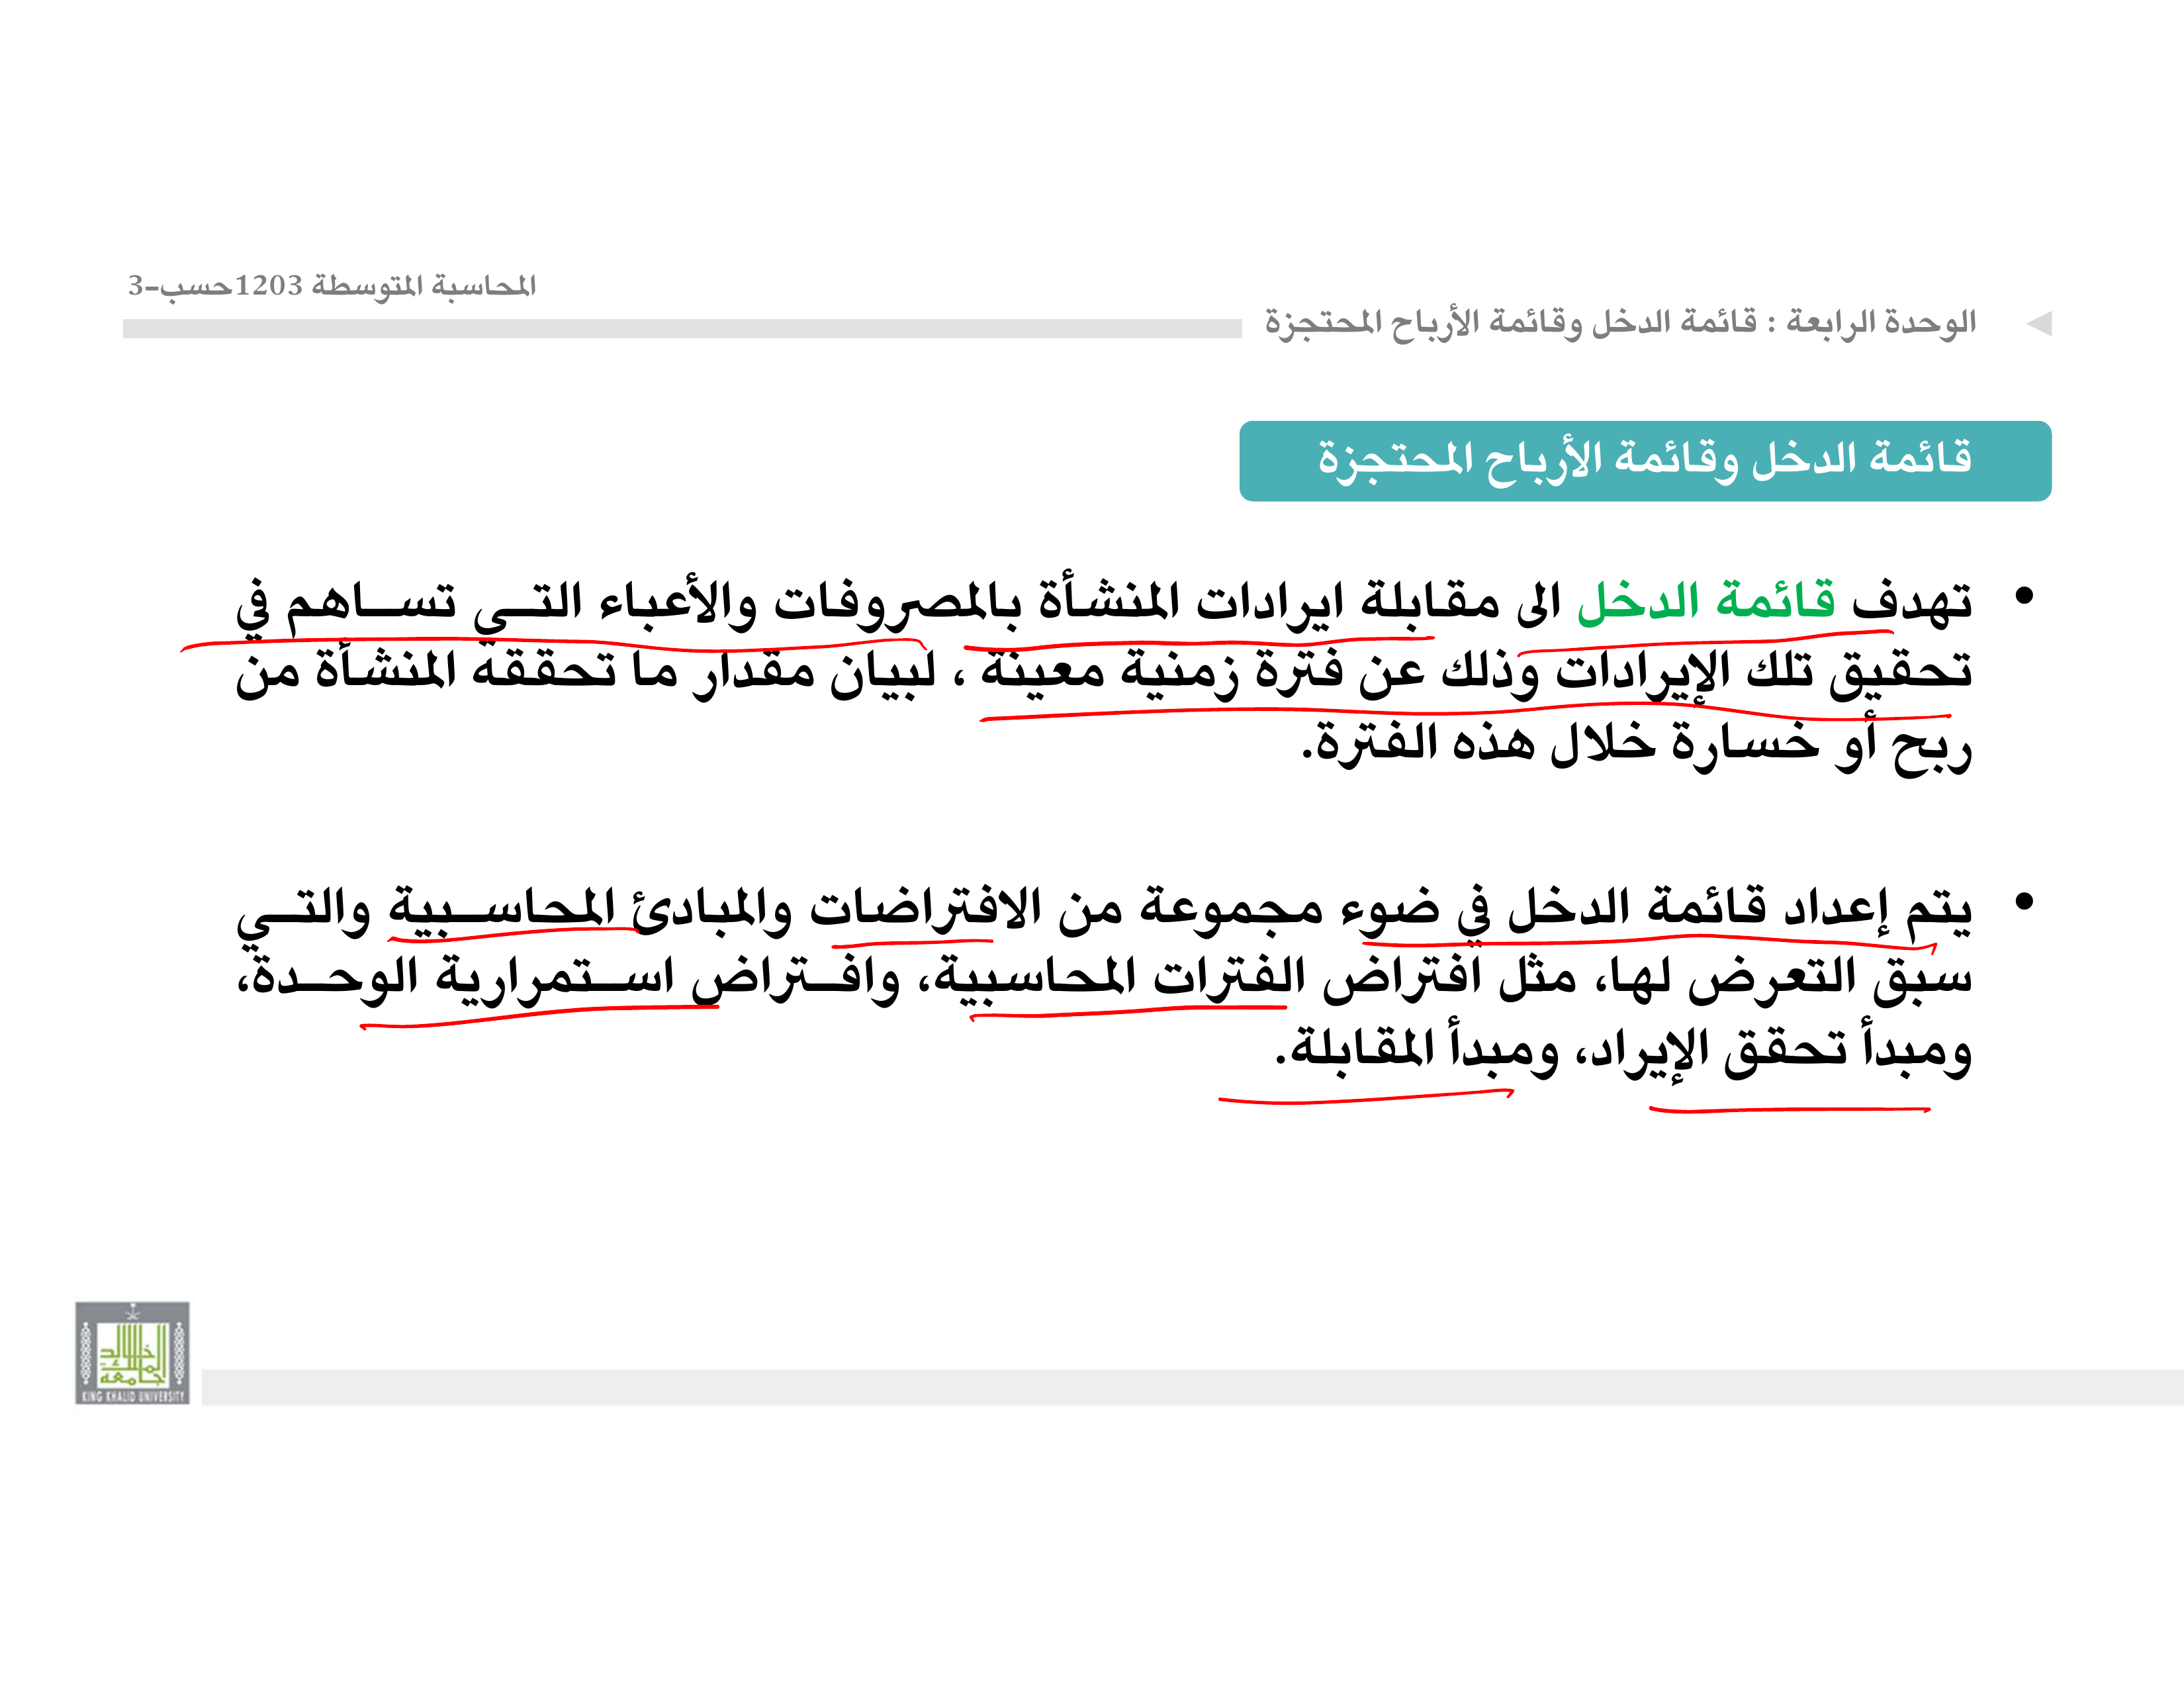 المحاسبة المتوسطة 1203حسب-3
الوحدة الرابعة : قائمة الدخل وقائمة الأرباح المحتجزة
قائمة الدخل وقائمة الأرباح المحتجزة
• تهدف قائمة الدخل الى مقابلة ايرادات المنشأة بالمصروفات والأعباء التي تساهم في
تحقيق تلك الإيرادات وذلك عن فترة زمنية معينة ، لبيان مقدار ما تحققة المنشأة من
ربح أو خسارة خلال هذه الفترة.
• يتم إعداد قائمة الدخل في ضوء مجموعة من الافتراضات والمبادئ المحاسبية والتي
سبق التعرض لها، مثل افتراض الفترات المحاسبية، وافتراض استمرارية الوحدة،
ومبدأ تحقق الإيراد، ومبدأ المقابلة.
جامعة الملك خالد
KING KHALID UNIVERSITY